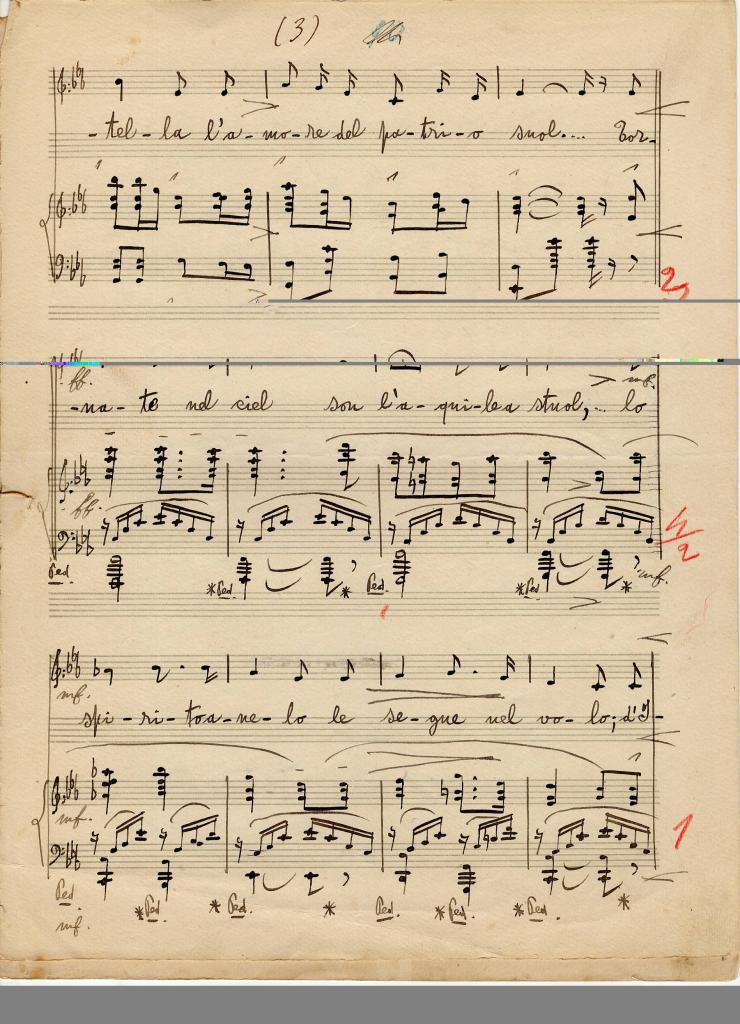 (3)
-tel-la l'a-mo-re del pa-tri-o suol.... Tor-
2
ff. mf.
-na-te nel ciel son l'a-qui-lea stuol,... lo
ff.
4/2
Ped * Ped. * Ped. * Ped * mf.
mf.
spi-ri-toa-ne-lo le se-gue nel vo-lo; d'I-
mf.
1
Ped * Ped * Ped. * Ped. * Ped. * Ped. *
mf.